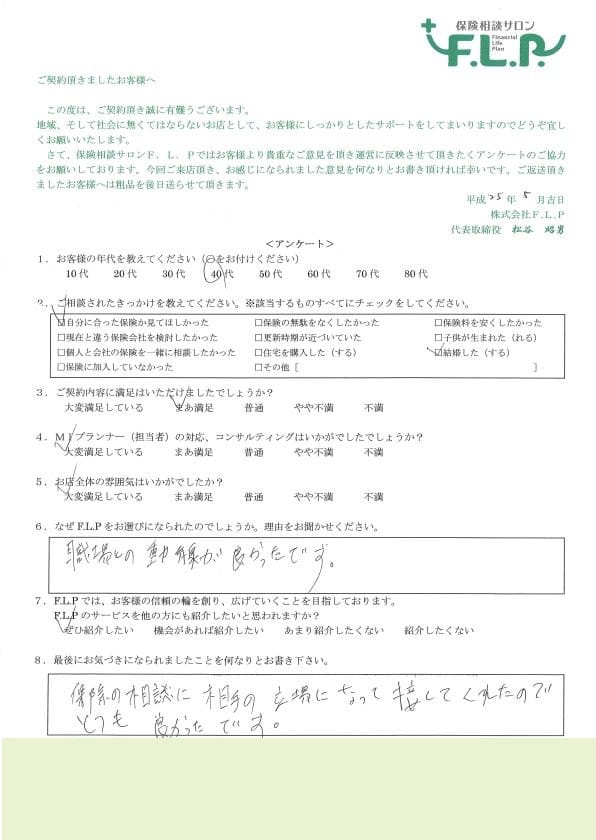 保険相談サロン
F.L.P.
Financial
Life
Plan
ご契約頂きましたお客様へ
この度は、ご契約頂き誠に有難うございます。
地域、そして社会に無くてはならないお店として、お客様にしっかりとしたサポートをしてまいりますのでどうぞ宜し
くお願いいたします。
さて、保険相談サロンF．L．Pではお客様より貴重なご意見を頂き運営に反映させて頂きたくアンケートのご協力
をお願いしております。今回ご来店頂き、お感じになられました意見を何なりとお書き頂ければ幸いです。ご返送頂き
ましたお客様へは粗品を後日送らせて頂きます。
平成 25 年 5 月吉日
株式会社F.L.P
代表取締役 松谷 昭男
＜アンケート＞
1．お客様の年代を教えてください（○をお付けください）
10代 20代 30代 40代 50代 60代 70代 80代
2．ご相談されたきっかけを教えてください。※該当するものすべてにチェックをしてください。
□自分に合った保険か見てほしかった □保険の無駄をなくしたかった □保険料を安くしたかった
□現在と違う保険会社を検討したかった □更新時期が近づいていた □子供が生まれた（れる）
□個人と会社の保険を一緒に相談したかった □住宅を購入した（する） □結婚した（する）
□保険に加入していなかった □その他［ ］
3．ご契約内容に満足はいただけましたでしょうか？
大変満足している まあ満足 普通 やや不満 不満
4．MJプランナー（担当者）の対応、コンサルティングはいかがでしたでしょうか？
大変満足している まあ満足 普通 やや不満 不満
5．お店全体の雰囲気はいかがでしたか？
大変満足している まあ満足 普通 やや不満 不満
6．なぜF.L.Pをお選びになられたのでしょうか。理由をお聞かせください。
職場との動線が良かったです。
7．F.L.Pでは、お客様の信頼の輪を創り、広げていくことを目指しております。
F.L.Pのサービスを他の方にも紹介したいと思われますか？
ぜひ紹介したい 機会があれば紹介したい あまり紹介したくない 紹介したくない
8．最後にお気づきになられましたことを何なりとお書き下さい。
保険の相談に相手の立場になって接してくれたので
とても良かったです。